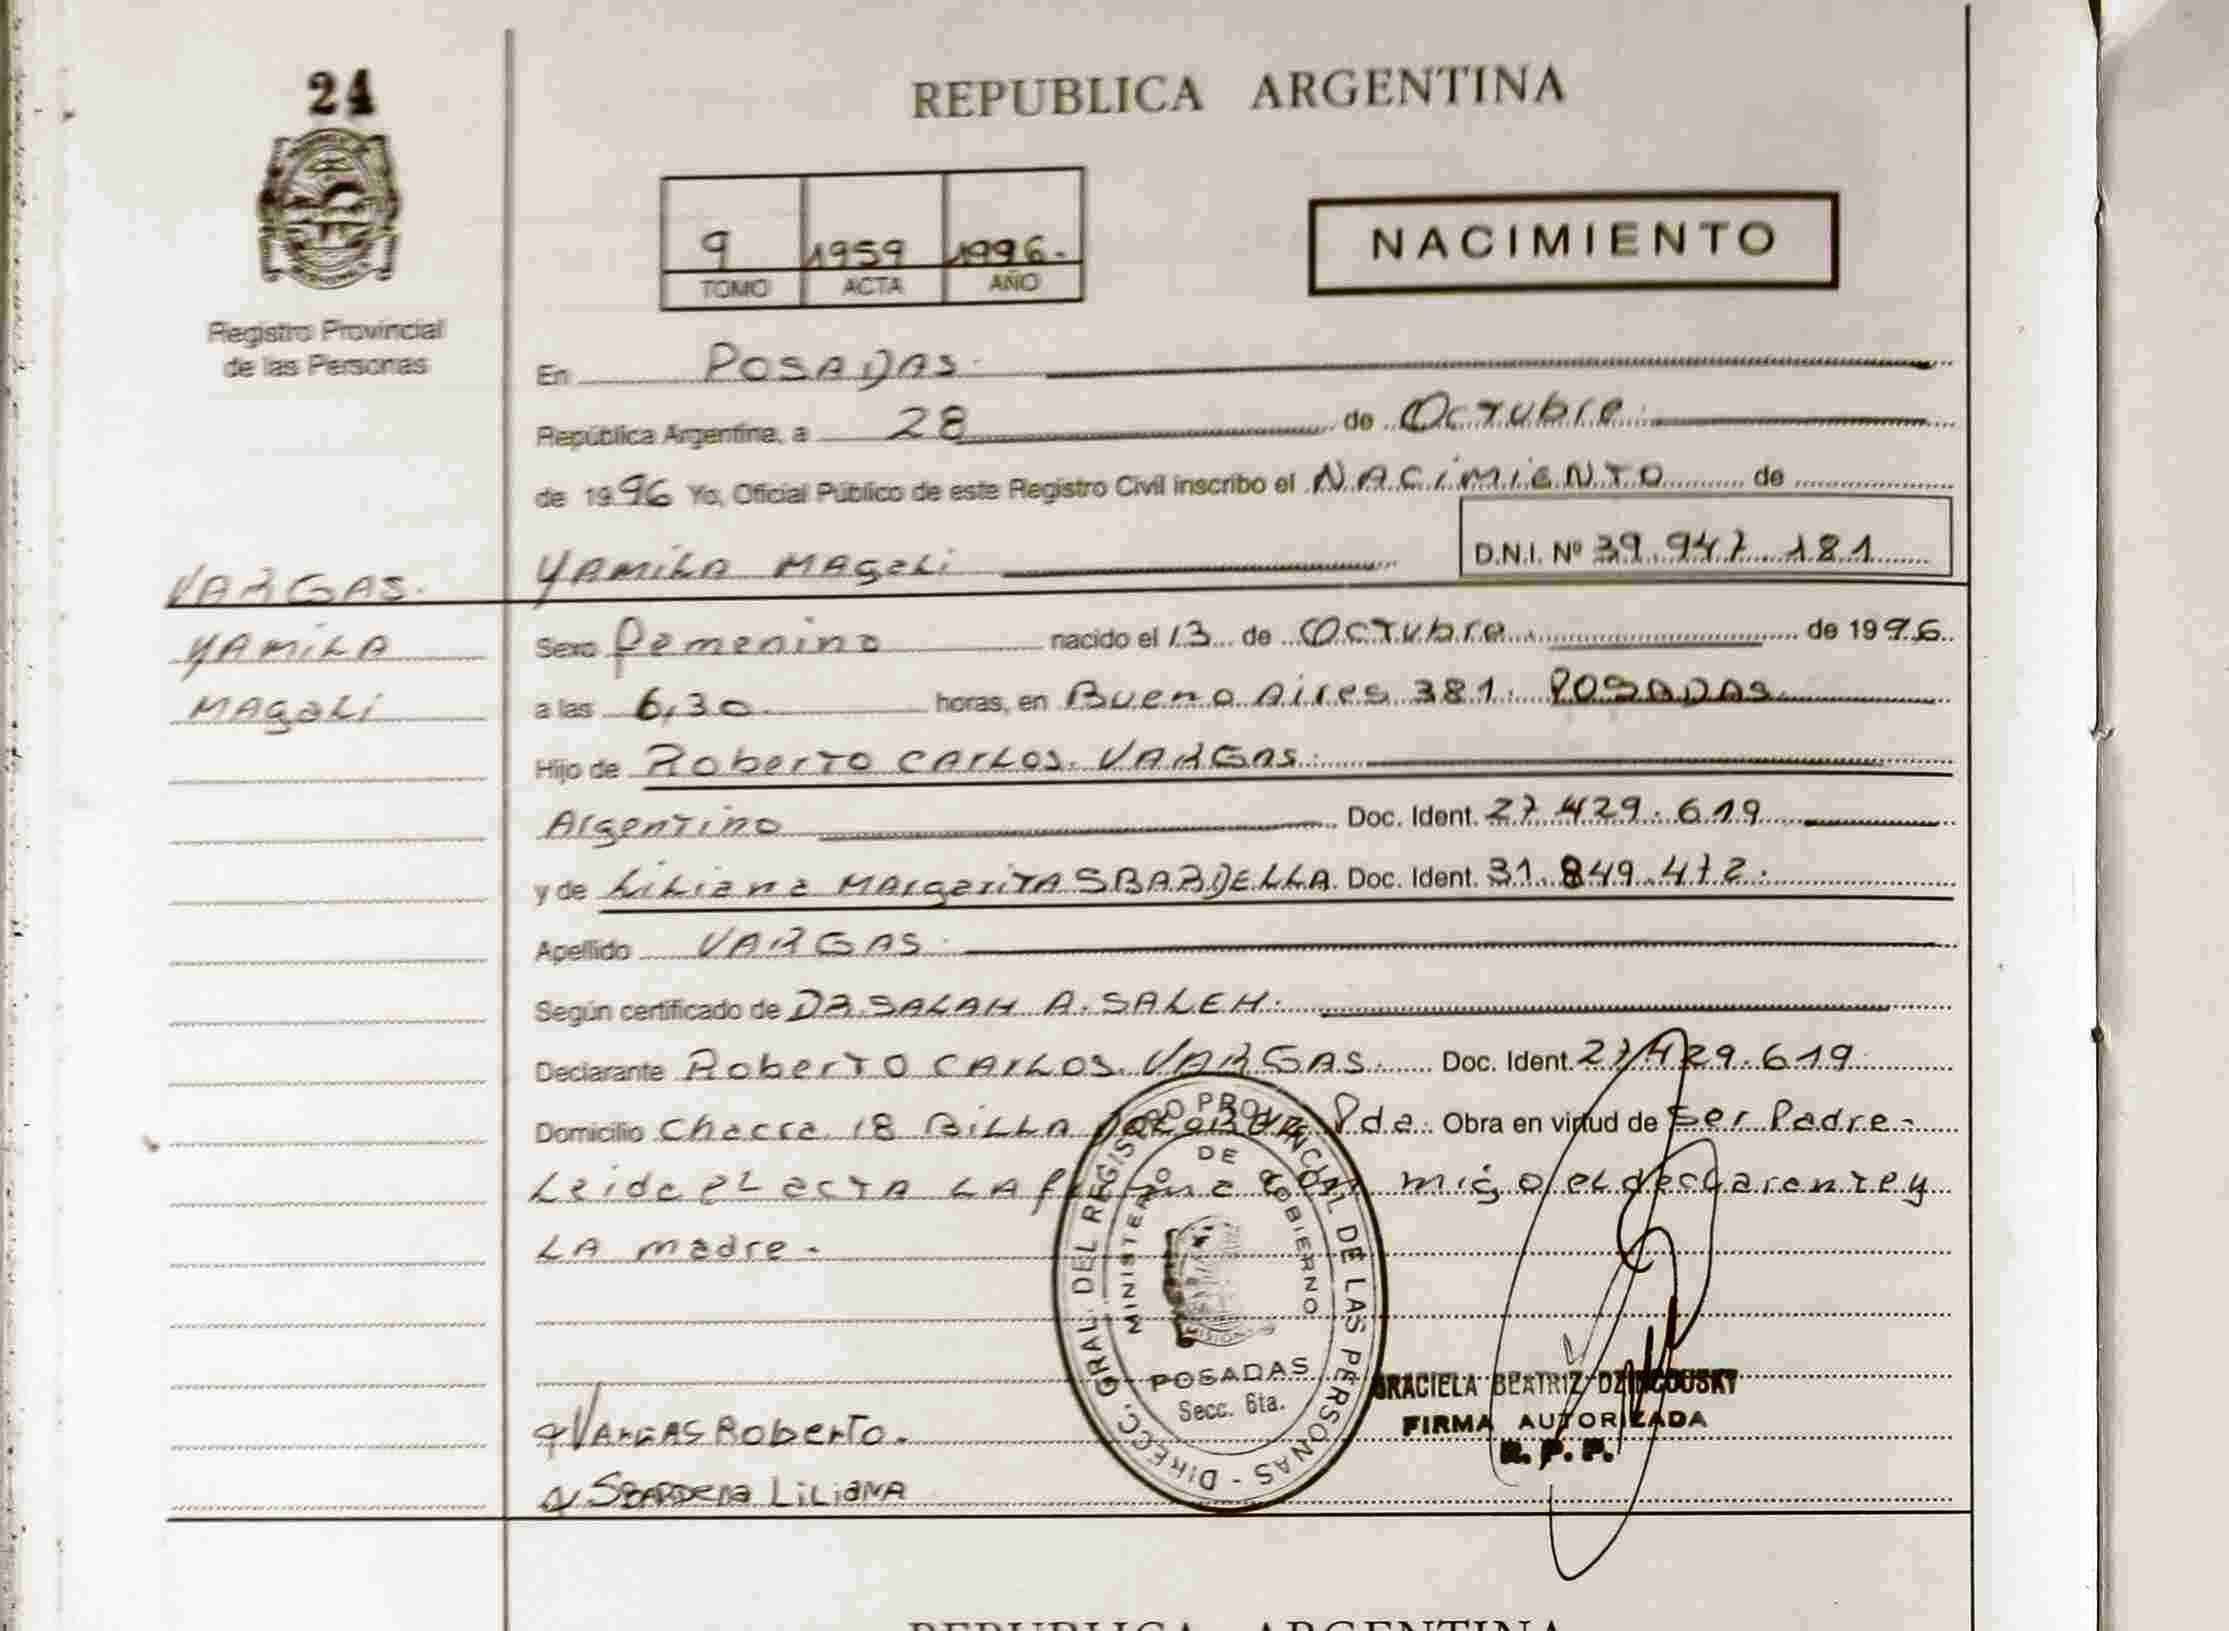 24
REPUBLICA ARGENTINA
9 1959 1996.
TOMO ACTA AÑO
NACIMIENTO
Registro Provincial
de las Personas
En POSADAS.
República Argentina, a 28 de Octubre.
de 1996 Yo, Oficial Público de este Registro Civil inscribo el NACIMIENTO de
Yamila Magali D.N.I. Nº 39.947.181
VARGAS.
YAMILA
MAgali
Sexo Femenino nacido el 13 de Octubre de 1996.
a las 6,30 horas, en Bueno Aires 381. POSADAS
Hijo de Roberto CARLOS. VARGAS.
Argentino Doc. Ident. 27.429.619
y de Liliana MArgarita SBARDELLA. Doc. Ident. 31.849.472.
Apellido VARGAS.
Según certificado de DR. SALAH A. SALEH.
Declarante Roberto CARLOS. VARGAS. Doc. Ident. 27.429.619.
Domicilio Chacra 18 Pda. Obra en virtud de Ser Padre-
Leida el acta LA firma con migo el declarante y
LA madre-
VARGAS Roberto.
LILIANA
DIRECC. GRAL. DEL REGISTRO PROVINCIAL DE LAS PERSONAS -
MINISTERIO DE GOBIERNO
POSADAS
Secc. 6ta.
GRACIELA BEATRIZ
FIRMA AUTORIZADA
R. P. P.
REPUBLICA ARGENTINA